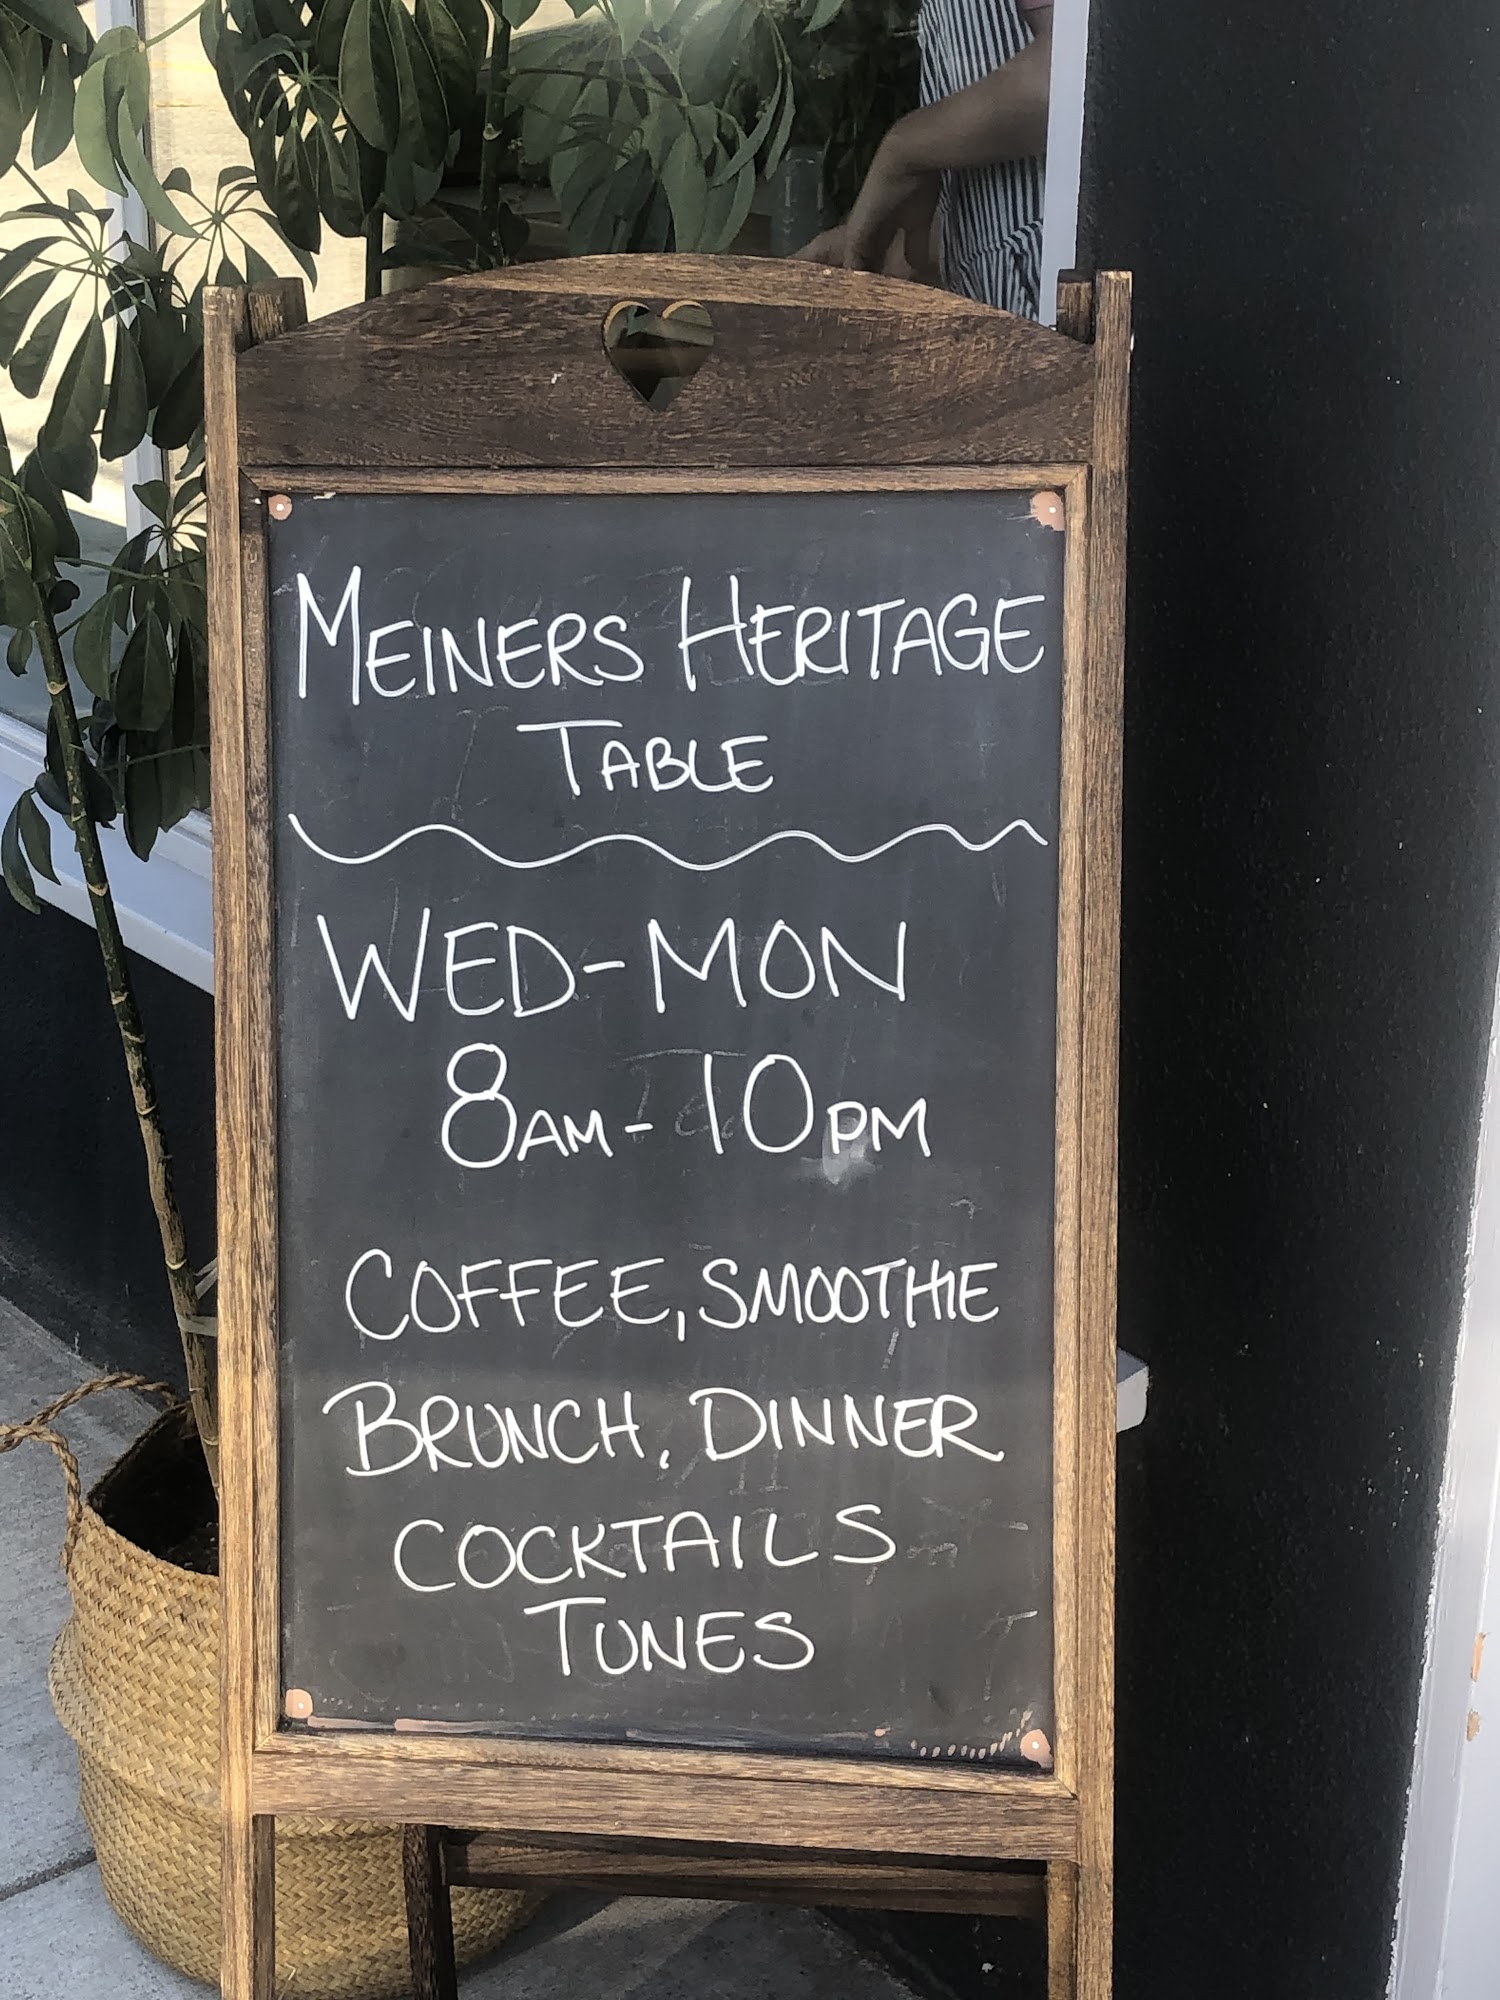 MEINERS HERITAGE
TABLE
WED-MON
8AM-10PM
COFFEE, SMOOTHIE
BRUNCH, DINNER
COCKTAILS
TUNES